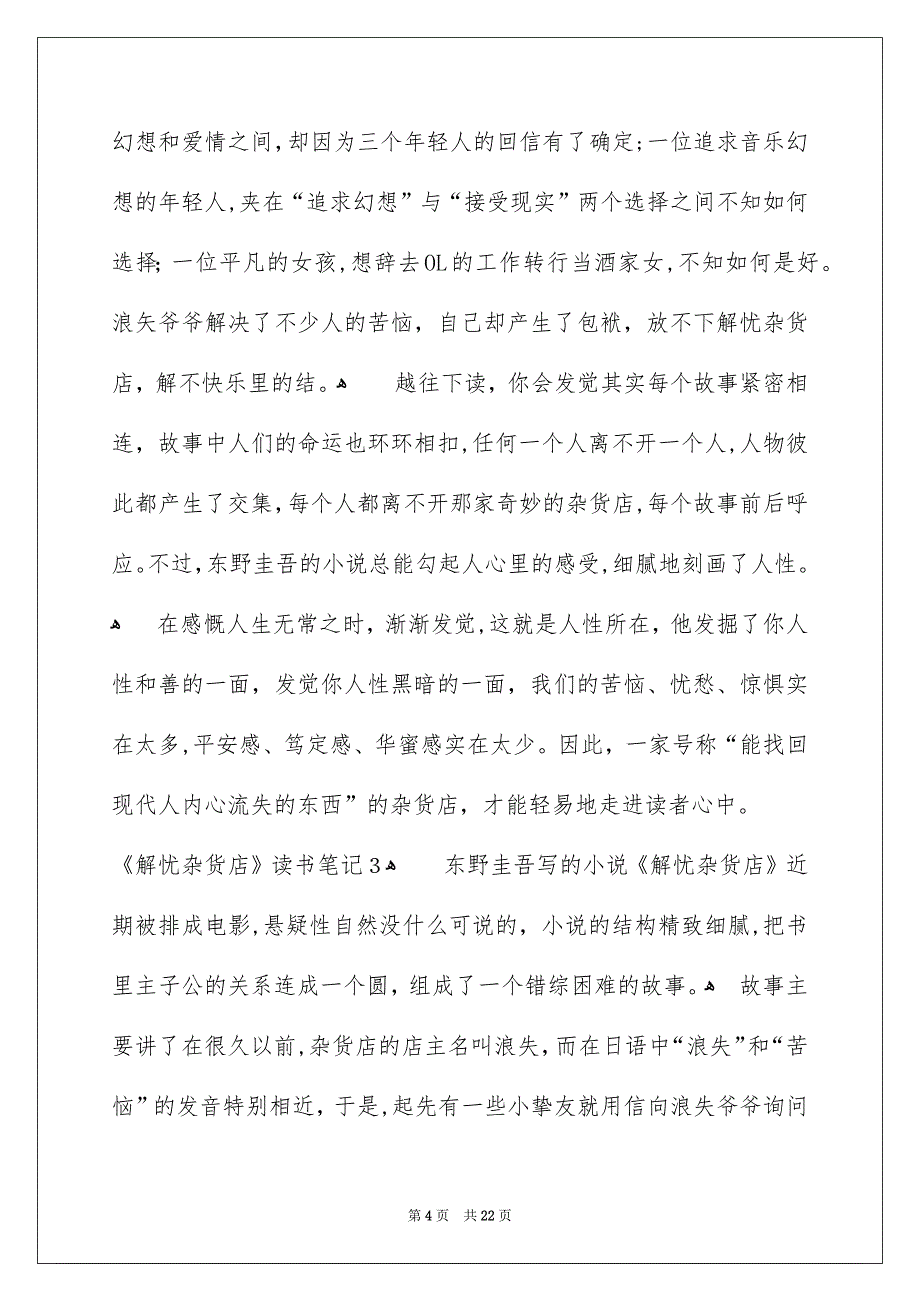 幻想和爱情之间,却因为三个年轻人的回信有了确定;一位追求音乐幻
想的年轻人,夹在“追求幻想”与“接受现实”两个选择之间不知如何
选择；一位平凡的女孩,想辞去OL的工作转行当酒家女,不知如何是好。
浪矢爷爷解决了不少人的苦恼，自己却产生了包袱，放不下解忧杂货
店，解不快乐里的结。ﻫ 越往下读，你会发觉其实每个故事紧密相
连，故事中人们的命运也环环相扣,任何一个人离不开一个人,人物彼
此都产生了交集,每个人都离不开那家奇妙的杂货店,每个故事前后呼
应。不过,东野圭吾的小说总能勾起人心里的感受,细腻地刻画了人性。
ﻫ 在感慨人生无常之时，渐渐发觉,这就是人性所在，他发掘了你人
性和善的一面，发觉你人性黑暗的一面，我们的苦恼、忧愁、惊惧实
在太多,平安感、笃定感、华蜜感实在太少。因此，一家号称“能找回
现代人内心流失的东西”的杂货店，才能轻易地走进读者心中。
《解忧杂货店》读书笔记3ﻫ 东野圭吾写的小说《解忧杂货店》近
期被排成电影,悬疑性自然没什么可说的，小说的结构精致细腻,把书
里主子公的关系连成一个圆，组成了一个错综困难的故事。ﻫ 故事主
要讲了在很久以前,杂货店的店主名叫浪失,而在日语中“浪失”和“苦
恼”的发音特别相近，于是,起先有一些小挚友就用信向浪失爷爷询问
第 4 页 共 22 页